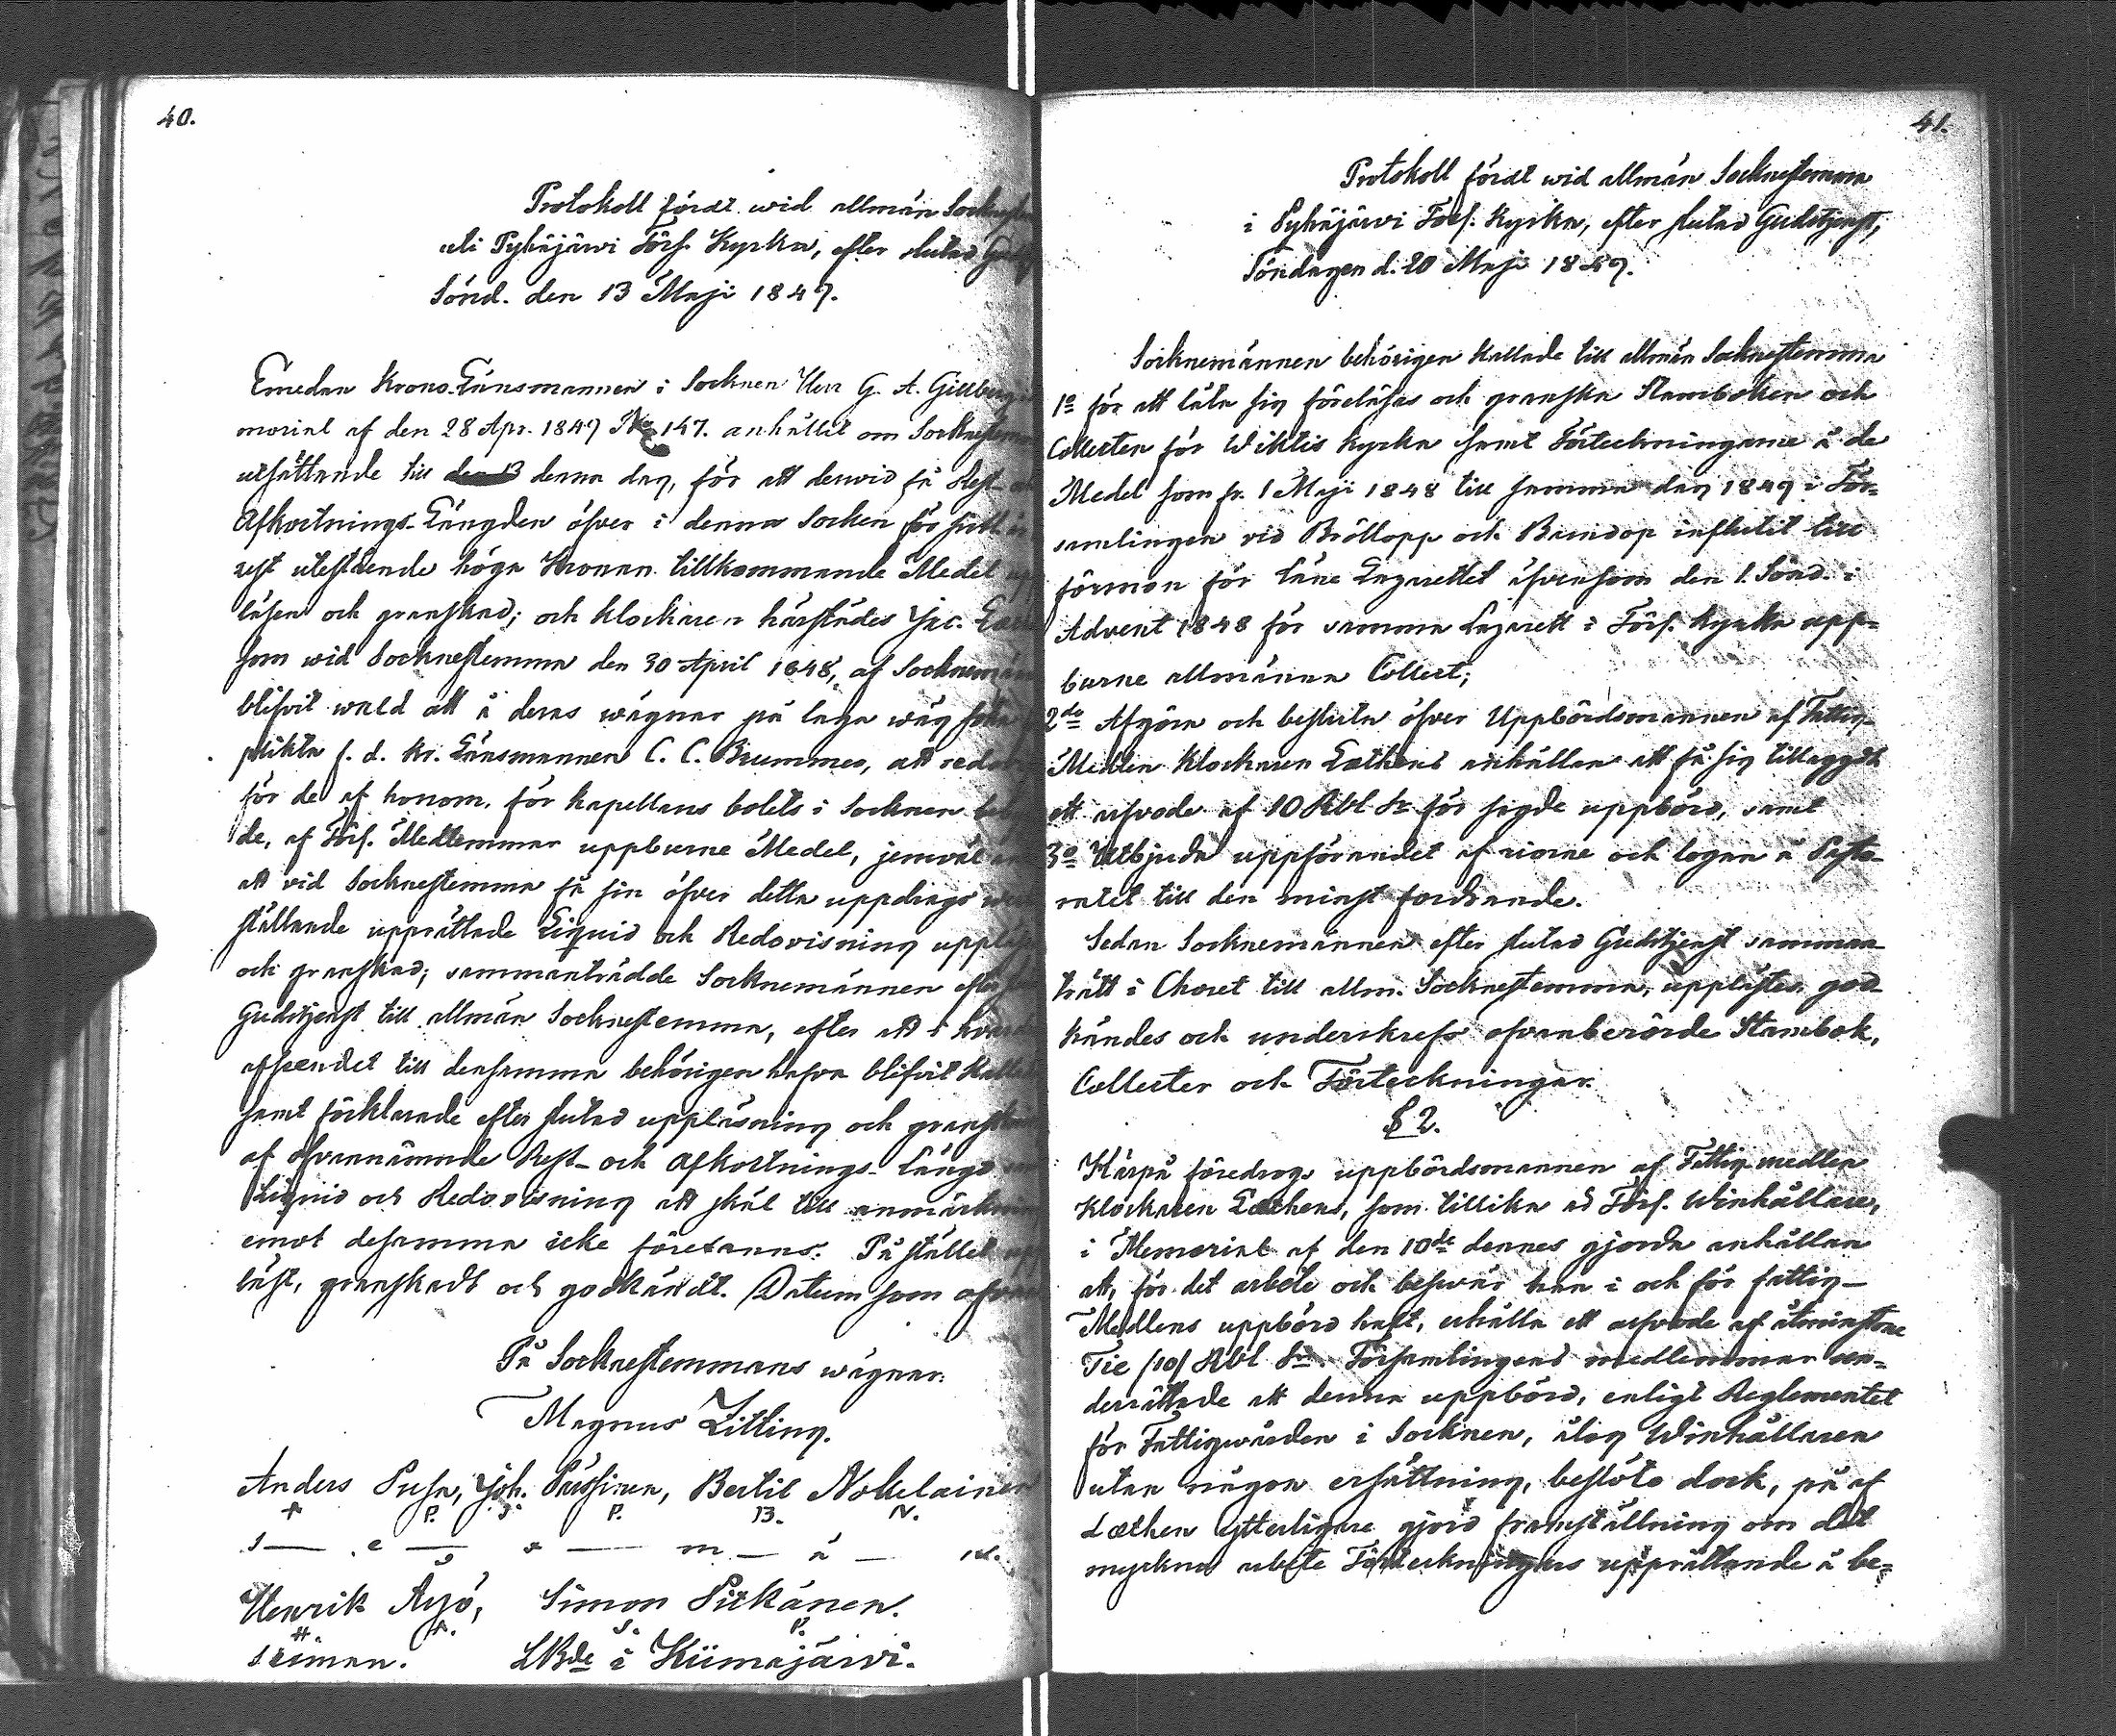 40.
Protokoll fördt wid allmän Sockneste
uti Pyhäjärwi Förs. Kyrka, efter slutad Gud
Sönd. den 13 Maji 1849.
Emedan Krono-Länsmannen i Socknen Herr G. A. Gillberg i
morial af den 28 Apr. 1849 No 147. anhållit om Sockneste
utsättande till den 13 denna dag, för att derwid få Rest- o
Afkortnings-Längden öfver i denna Socken för
rest utestående höga Kronan tillkommande Medel upp
läsen och granskad; och klockaren härstädes Jac. Læ
som wid Sockenstemma den 30 April 1848, af Socknemän
blifvit wald att å deras wägnar på laga wäg söka
plikta f. d. Kr. Länsmannen C. C. Brummer, att redo
för de af honom, för kapellans bolets i Socknen
de, af Förs. Medlemmar uppburne Medel, jemväl
att vid Socknestemma få sin öfver detta uppdrags
ställande upprättade Liquid och Redovisning uppläs
och granskad; sammanträdde Socknemännen efter slu
Gudstjenst till allmän Socknestemma, efter att i
afseendet till densamma behörigen hafva blifvit Kalla
samt förklarade efter slutad uppläsning och gransk
af ofvannämnde Rest- och Afkortnings-längd
Liquid och Redovisning att skäl till anmärknin
emot desamma icke förefanns. På stället upp
läst, granskadt och godkändt. Datum som ofvan
På Socknestemmans wägnar:
Magnus Litting.
Anders Pusa, Joh. Pässinen, Bertil Nokelainen
A P. J P. B. N.
S — e — o — m — ä —
Henrik Äijö, Simon Pitkänen.
H. Ä. S. P.
LBde i Kiimajärwi.
41.
Protokoll fördt wid allmän Socknestemma
i Pyhäjärwi Förs. Kyrka, efter slutad Gudstjenst,
Söndagen d. 20 Maji 1849.
Socknemännen behörigen kallade till allmän Socknestemma
1o för att låta sig föreläsas och granska Stamboken och
Collecten för Wiktis kyrka samt Förteckningarne å de
Medel som fr. 1 Maji 1848 till samma dag 1849 i För=
samlingen vid Bröllopp och Barndop influtit till
förmon för Läne Lazarettet äfvensom den 1. Sönd. i
Advent 1848 för samma Lazarett i Förs. Kyrka upp=
burne allmänna Collect;
2de Afgöra och besluta öfver Uppbördsmannen af Fattig-
Medlen Klockaren Læthens anhållan att få sig tillaggdt
ett arfvode af 10 Rbl Sr för sagde uppbörd, samt
3o Utbjuda uppförandet af riorne och logan å Pasto-
ratet till den minst fordrande.
Sedan Socknemännen efter slutad Gudstjenst samman-
trätt i Choret till allm. Socknestemma, upplästes, god-
kändes och underskrefs ofvanberörde Stambok,
Collecter och Förteckningar.
§ 2.
Härpå föredrogs uppbördsmannen af Fattig medlen
Klockaren Læthens, som tillika är Förs. Winhållare,
i Memorial af den 10de dennes gjorda anhållan
att, för det arbete och beswär han i och för fattig-
Medlens uppbörd haft, erhålla ett arfvode af åtminstone
Tie (10) Rbl Sr. Församlingens medlemmar un=
derrättade att denna uppbörd, enligt Reglementet
för Fattigwården i Socknen, ålåg Winhållaren
utan någon ersättning, beslöto dock, på af
Læthen ytterligare gjord framställning om det
myckna arbete Förteckningars upprättande å be=